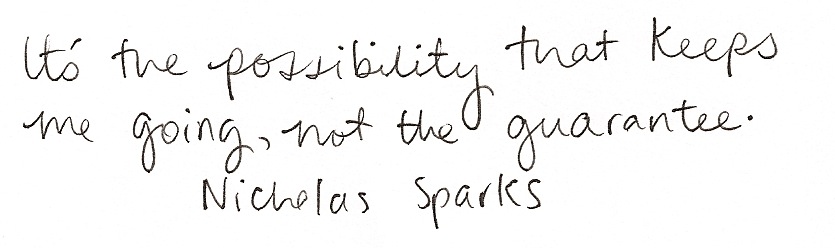 It's the possibility that keeps
me going, not the guarantee.
Nicholas Sparks